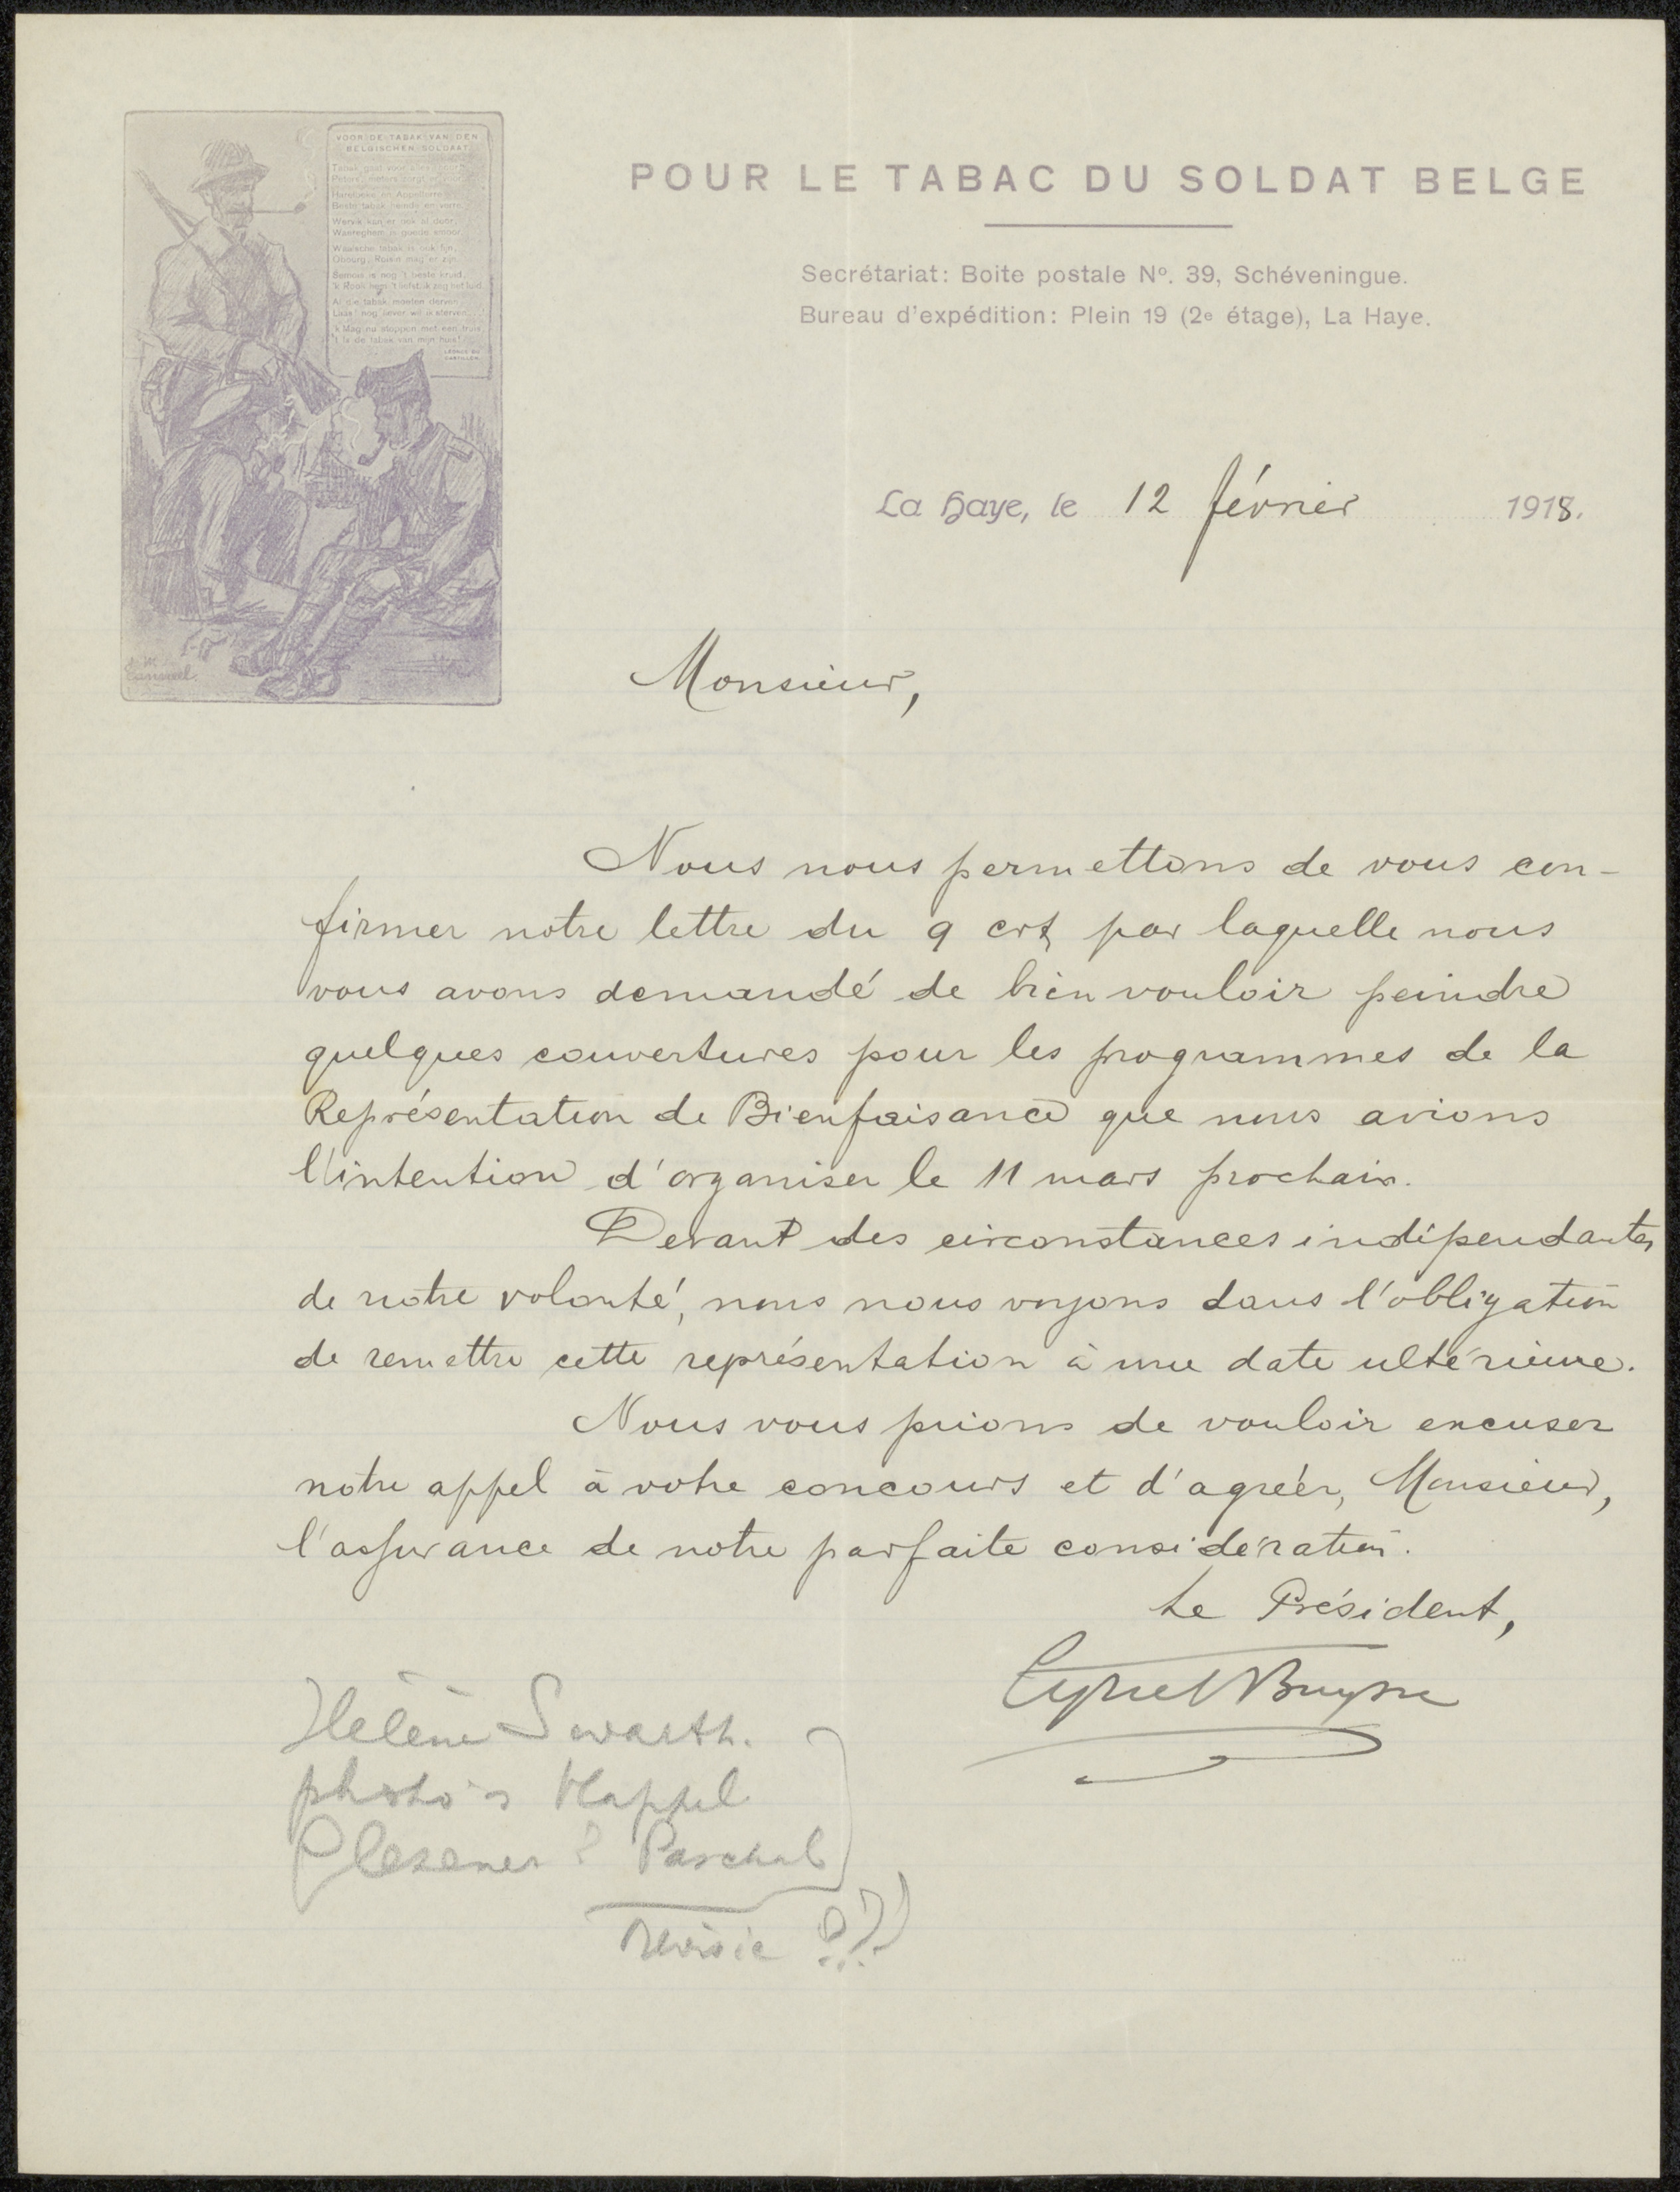 VOOR DE TABAK VAN DEN
BELGISCHEN SOLDAAT
Tabak gaat voor
Peters, meters zorgt
Harelbeke en Appelterre
Beste tabak heinde en verre
Wervik kan er ook al door,
Wanteghem is goede smoor.
Waalsche tabak is ook fijn,
Obourg, Roisin mag er zijn.
Semois is nog 't beste kruid,
'k Rook hem 't liefst
Al die tabak moeten derven
Laas! nog liever wil ik sterven.
'k Mag nu stoppen met een truis
't Is de tabak van mijn huis!
POUR LE TABAC DU SOLDAT BELGE
Secrétariat: Boite postale Nº. 39, Schéveningue.
Bureau d'expédition: Plein 19 (2e étage), La Haye.
La Haye, le 12 février 1918.
Monsieur,
Nous nous permettons de vous con-
firmer notre lettre du 9 crt par laquelle nous
vous avons demandé de bien vouloir peindre
quelques couvertures pour les programmes de la
Représentation de Bienfaisance que nous avions
l'intention d'organiser le 11 mars prochain.
Devant des circonstances indépendantes
de notre volonté, nous nous voyons dans l'obligation
de remettre cette représentation à une date ultérieure.
Nous vous prions de vouloir excuser
notre appel à votre concours et d'agréér, Monsieur,
l'assurance de notre parfaite considération.
Le Président,
Cyriel Buysse
Hélène Swarth.
photo's Kappel
Glesener? Paschal
Revisie ?!!